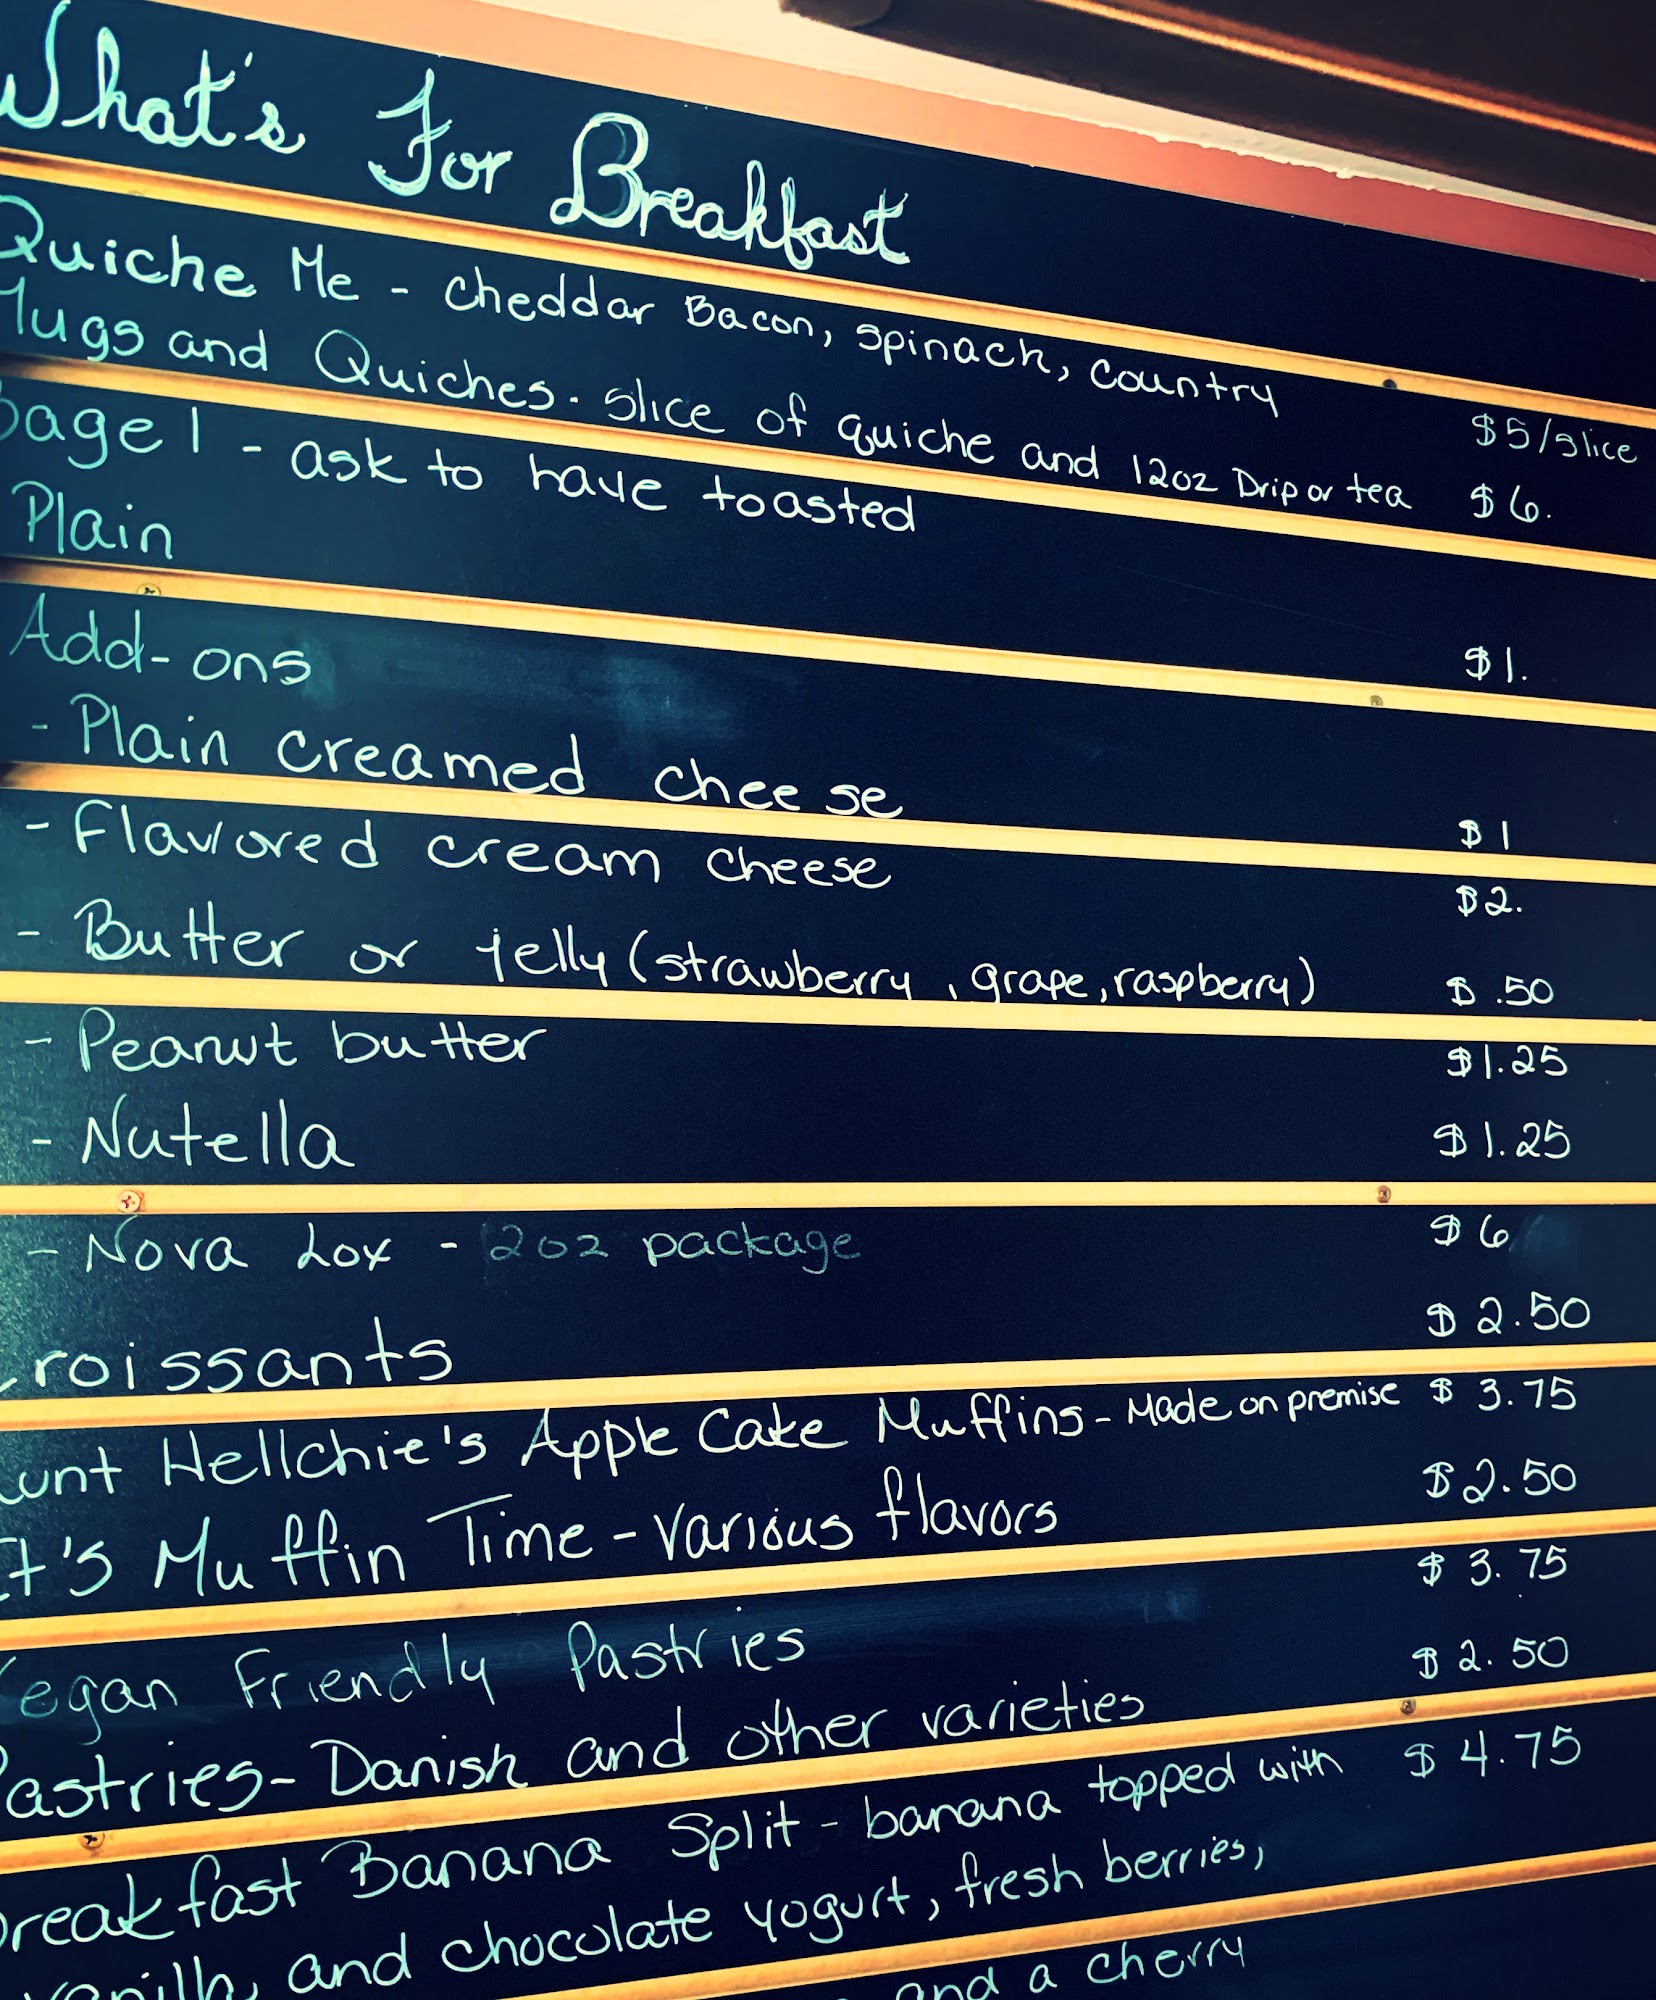 What's For Breakfast
Quiche Me - cheddar Bacon, spinach, country $5/slice
Hugs and Quiches. slice of quiche and 12oz Drip or tea $6.
Bagel - ask to have toasted
Plain $1.
Add-ons
- Plain creamed cheese $1
- Flavored cream cheese $2.
- Butter or jelly (strawberry, grape, raspberry) $.50
- Peanut butter $1.25
- Nutella $1.25
- Nova Lox - 2oz package $6
Croissants $2.50
Aunt Hellchie's Apple Cake Muffins - Made on premise $3.75
It's Muffin Time - Various flavors $2.50
Vegan Friendly Pastries $3.75
Pastries - Danish and other varieties $2.50
Breakfast Banana Split - banana topped with $4.75
vanilla, and chocolate yogurt, fresh berries,
and a cherry